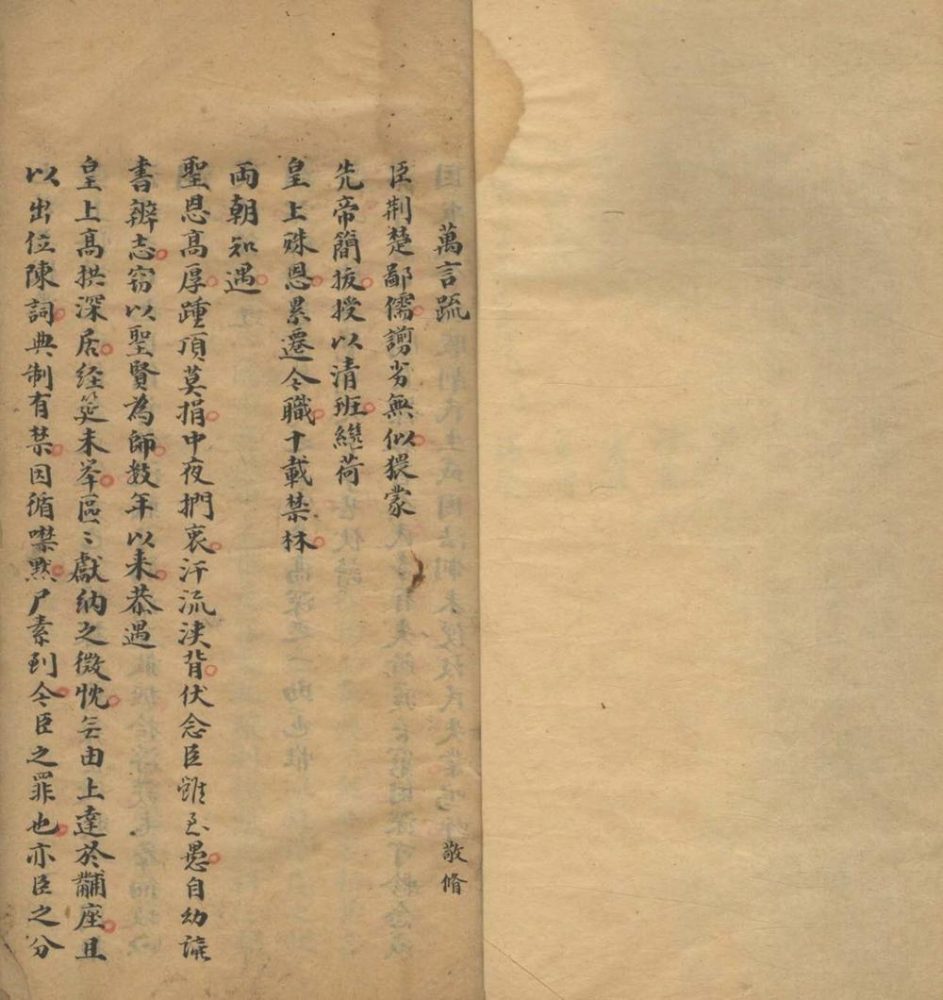 萬言疏 敬脩
臣荆楚鄙儒謭劣無似猥蒙
先帝簡拔授以清班繼荷
皇上殊恩累遷今職十載禁林
兩朝知遇
聖恩高厚踵頂莫捐中夜捫衷汗流浹背伏念臣雖至愚自幼讀
書辨志窃以聖賢為師数年以来恭遇
皇上高拱深居经筵未举區〻獻納之微忱無由上達於黼座且
以出位陳詞典制有禁因循噤默尸素到今臣之罪也亦臣之分